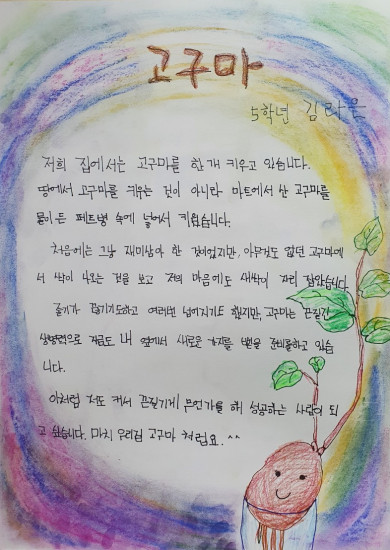 고구마
5학년 김라은
저희 집에서는 고구마를 한 개 키우고 있습니다.
땅에서 고구마를 키우는 것이 아니라 마트에서 산 고구마를
물이 든 페트병 속에 넣어서 키웠습니다.
처음에는 그냥 재미삼아 한 것이었지만, 아무것도 없던 고구마에
서 싹이 나오는 것을 보고 저의 마음에도 새싹이 자리 잡았습니다.
줄기가 끊기기도하고 여러번 넘어지기도 했지만, 고구마는 끈질긴
생명력으로 지금도 내 옆에서 새로운 가지를 뻗을 준비를하고 있습
니다.
이처럼 저도 커서 끈질기게 무언가를 해 성공하는 사람이 되
고 싶습니다. 마치 우리집 고구마 처럼요. ^^